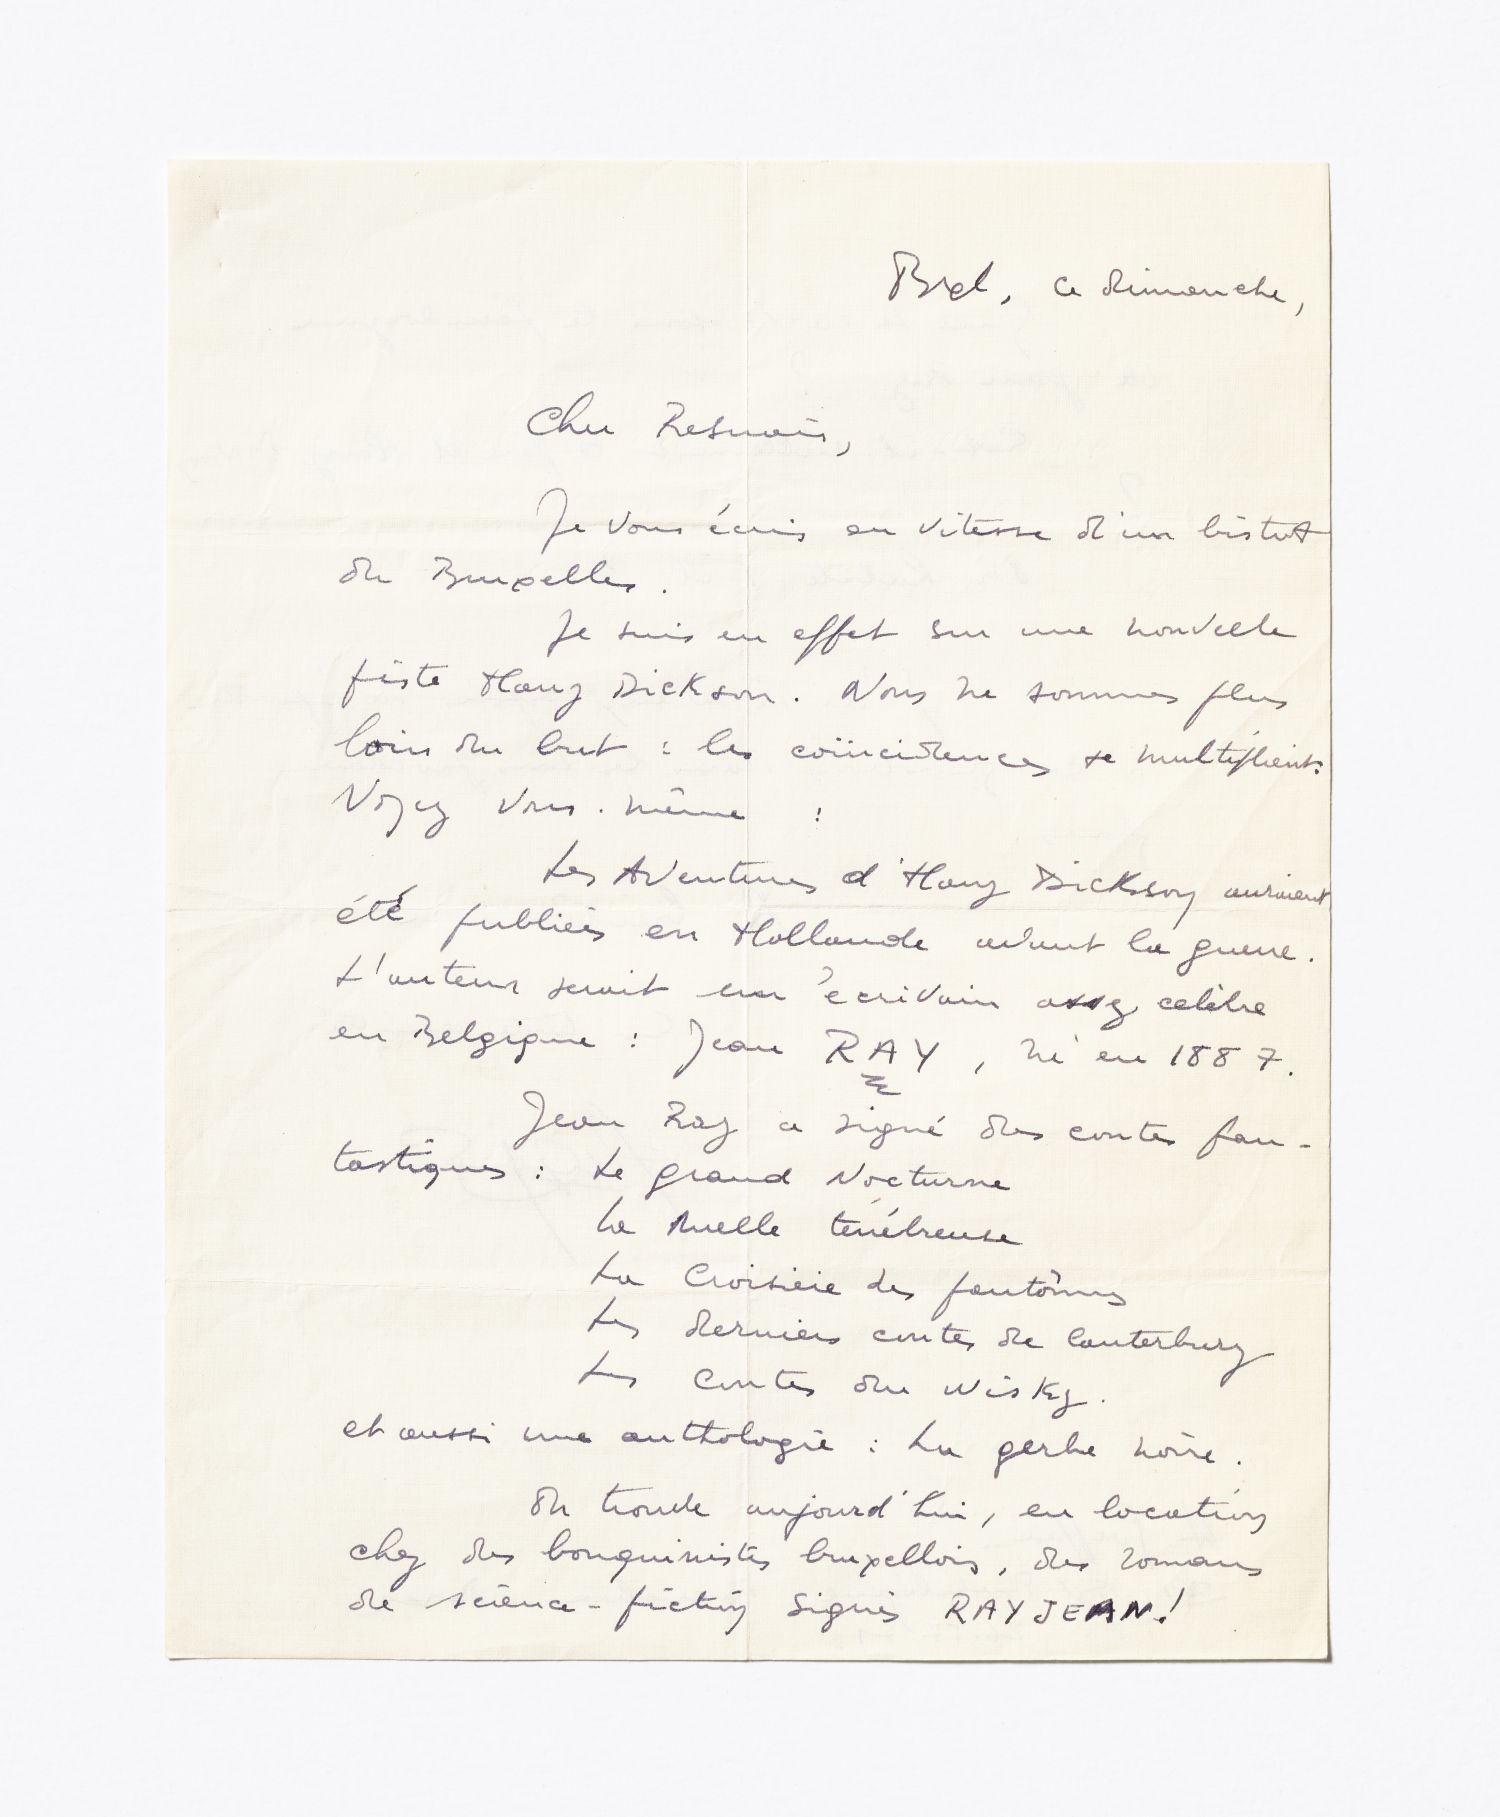 Bxl, ce dimanche,
Cher Resnais,
Je vous écris en vitesse d'un bistrot
de Bruxelles.
Je suis en effet sur une nouvelle
piste Harry Dickson. Nous ne sommes plus
loin du but : les coïncidences se multiplient.
Voyez vous-même :
Les Aventures d'Harry Dickson auraient
été publiées en Hollande avant la guerre.
L'auteur serait un écrivain assez célèbre
en Belgique : Jean RAY, né en 1887.
Jean Ray a signé des contes fan-
tastiques : Le grand Nocturne
La Ruelle ténébreuse
La Croisière des fantômes
Les derniers contes de Canterbury
Les Contes du Wisky.
et aussi une anthologie : La gerbe noire.
On trouve aujourd'hui, en location
chez des bouquinistes bruxellois, des romans
de science-fiction signés RAY JEAN!